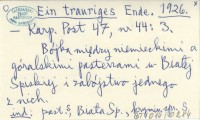 Ein trauriges Ende. 1926.
— Karp. Post 47, nr. 44: 3.
Bójka między niemieckimi a
góralskimi pasterzami w Białej
Spiskiej i zabójstwo jednego
z nich.
ind: past. S., Biała Sp.,